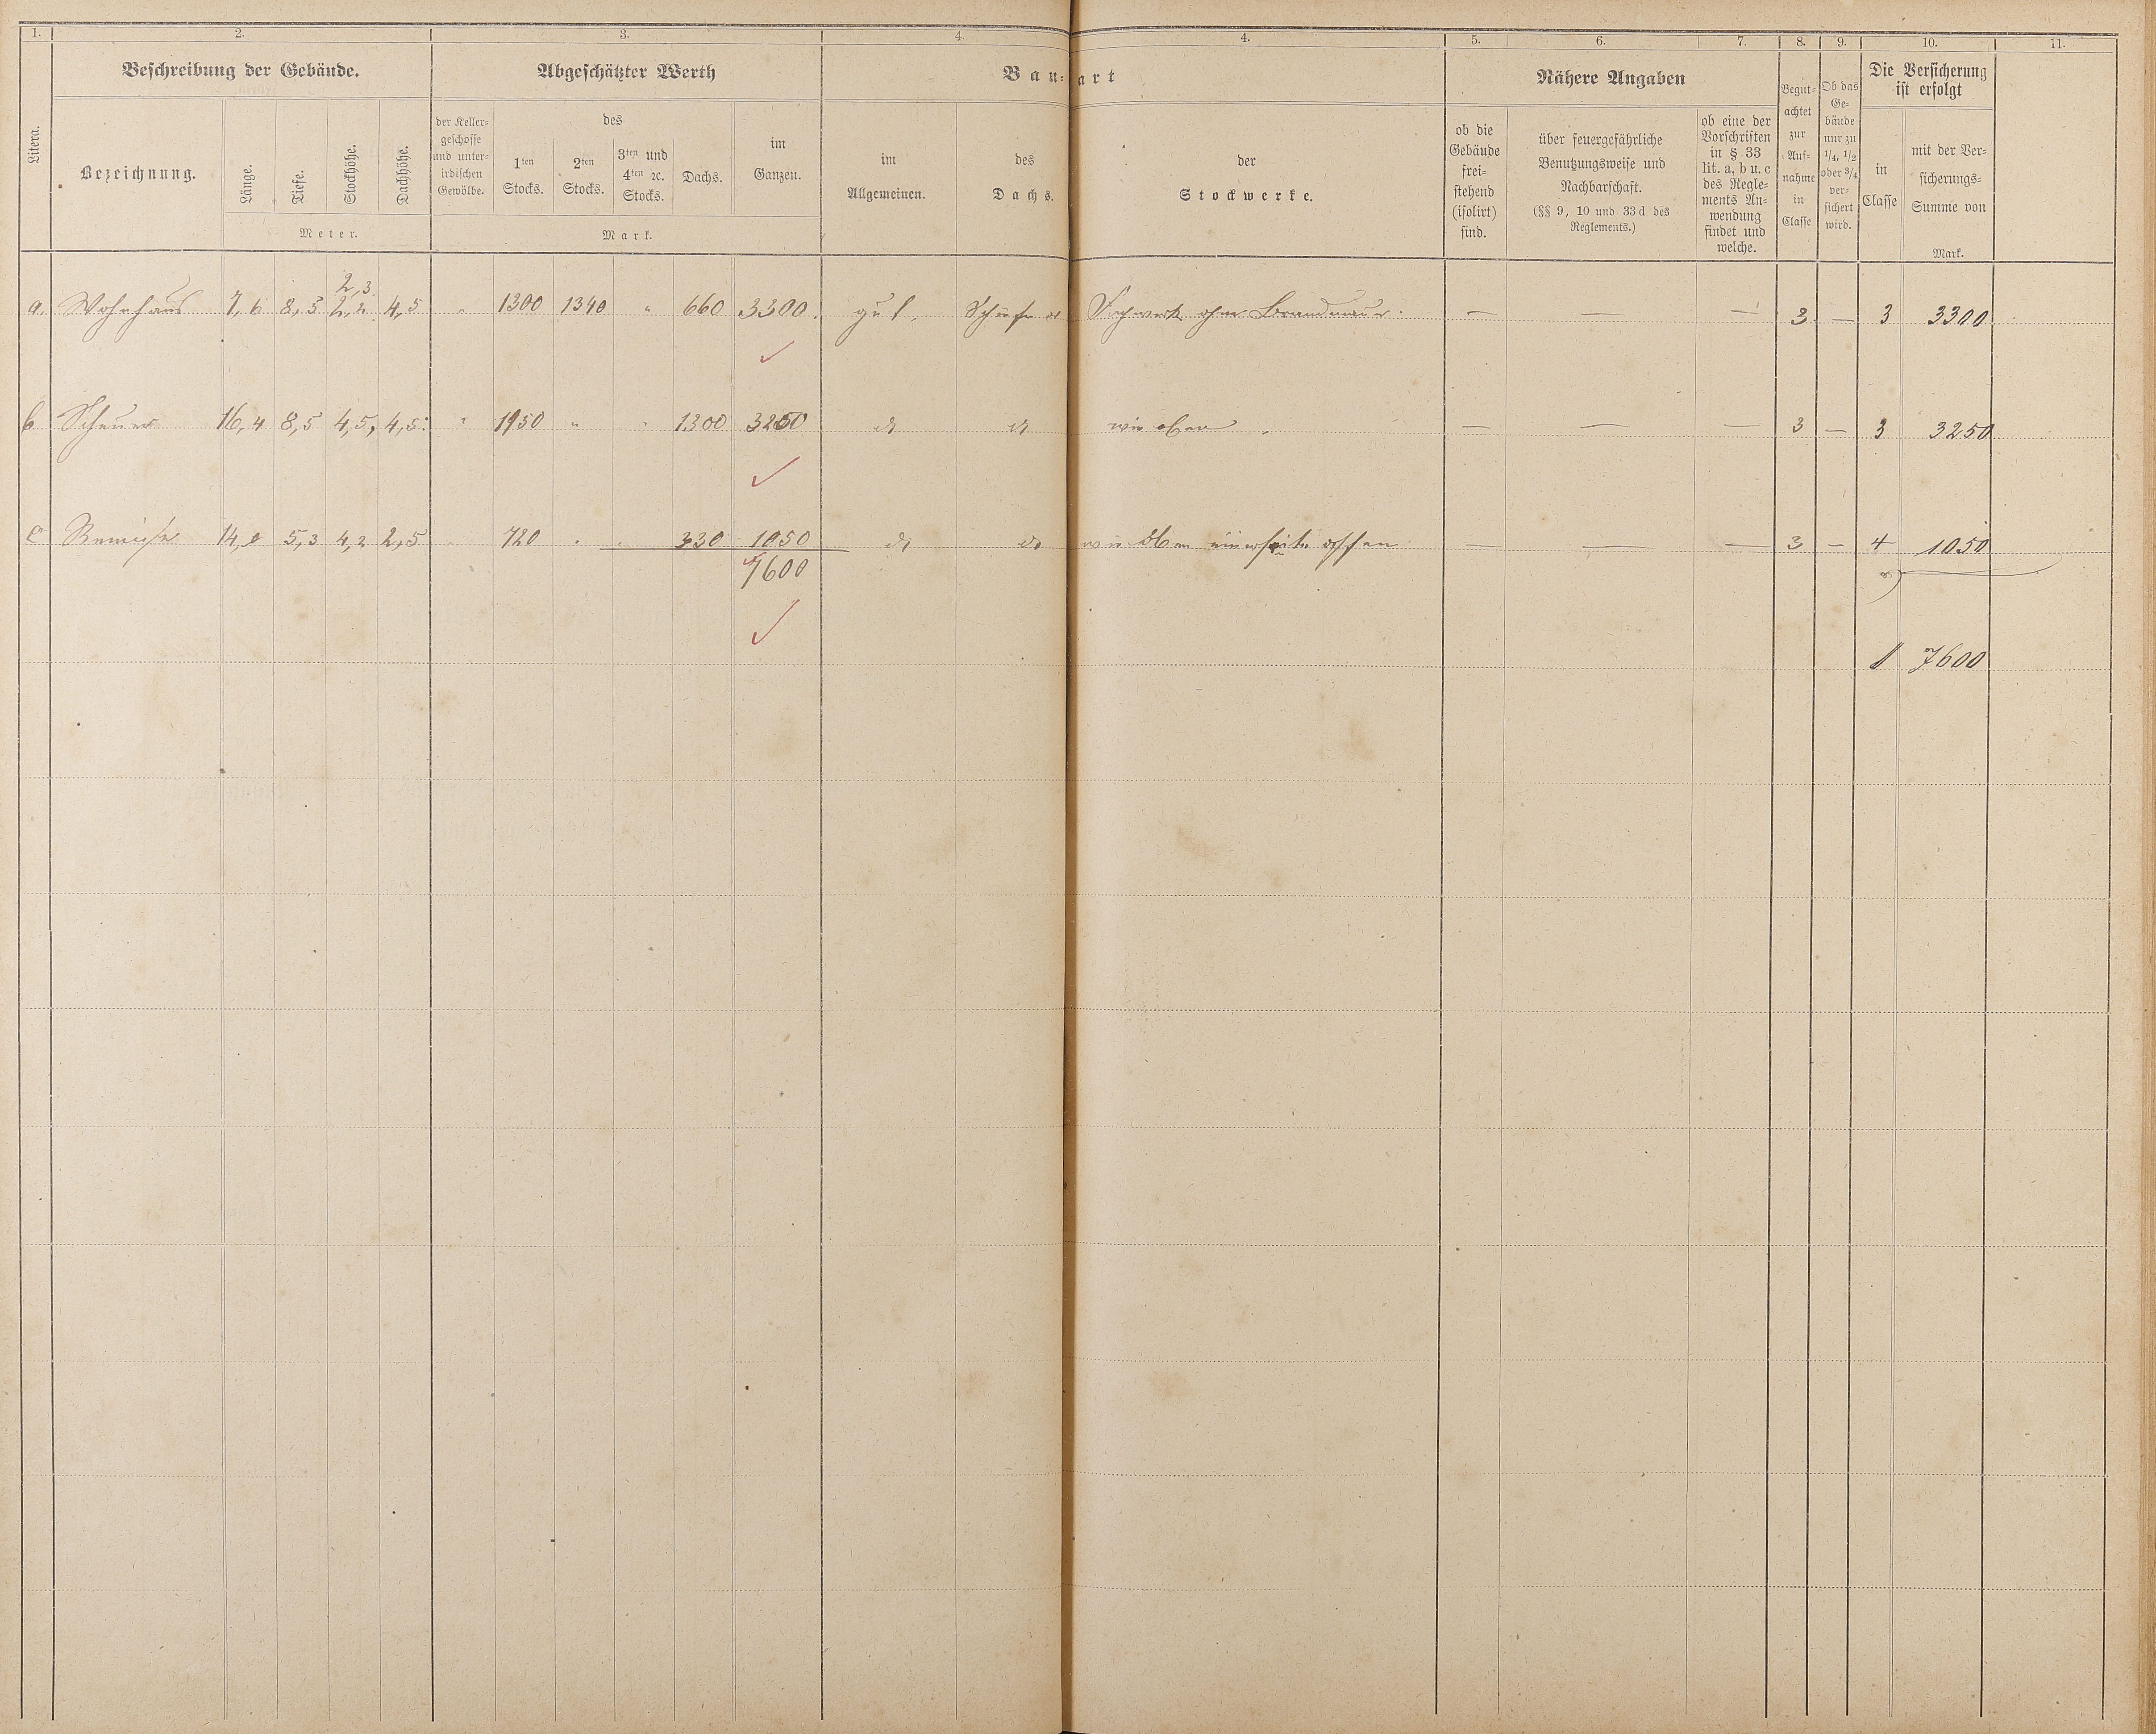 1. 2. 3. 4. 4. 5. 6. 7. 8. 9. 10. 11.
Beschreibung der Gebäude. Abgeschätzter Werth Bau-art Nähere Angaben
Litera.
Bezeichnung.
Länge.
Tiefe.
Stockhöhe.
Dachhöhe.
Meter.
der Keller-
geschosse
und unter-
irdischen
Gewölbe.
des
1ten
Stocks.
2ten
Stocks.
3ten und
4ten ꝛc.
Stocks.
Dachs.
im
Ganzen.
Mark.
im
Allgemeinen.
des
Dachs.
der
Stockwerke.
ob die
Gebäude
frei-
stehend
(isolirt)
sind.
über feuergefährliche
Benutzungsweise und
Nachbarschaft.
(§§ 9, 10 und 33 d des
Reglements.)
ob eine der
Vorschriften
in § 33
lit. a, b u. c
des Regle-
ments An-
wendung
findet und
welche.
Begut-
achtet
zur
Auf-
nahme
in
Classe
Ob das
Ge-
bäude
nur zu
1/4, 1/2
oder 3/4
ver-
sichert
wird.
Die Versicherung
ist erfolgt
in
Classe
mit der Ver-
sicherungs-
Summe von
Mark.
2,3
a. Wohnhaus 7,6 8,5 2,2 4,5 " 1300 1340 " 660 3300. gut. Fachwerk ohne Brandmauer. — — — 3 — 3 3300
b Scheuer 16,4 8,5 4,5, 4,5. " 1950 " " 1300 3250 do do wie oben — — — 3 — 3 3250
c Remise 5,3 4,2 2,5 " 720 " " 330 1050 do do wie oben einerseits offen — — — 3 — 4 1050
7600
7600